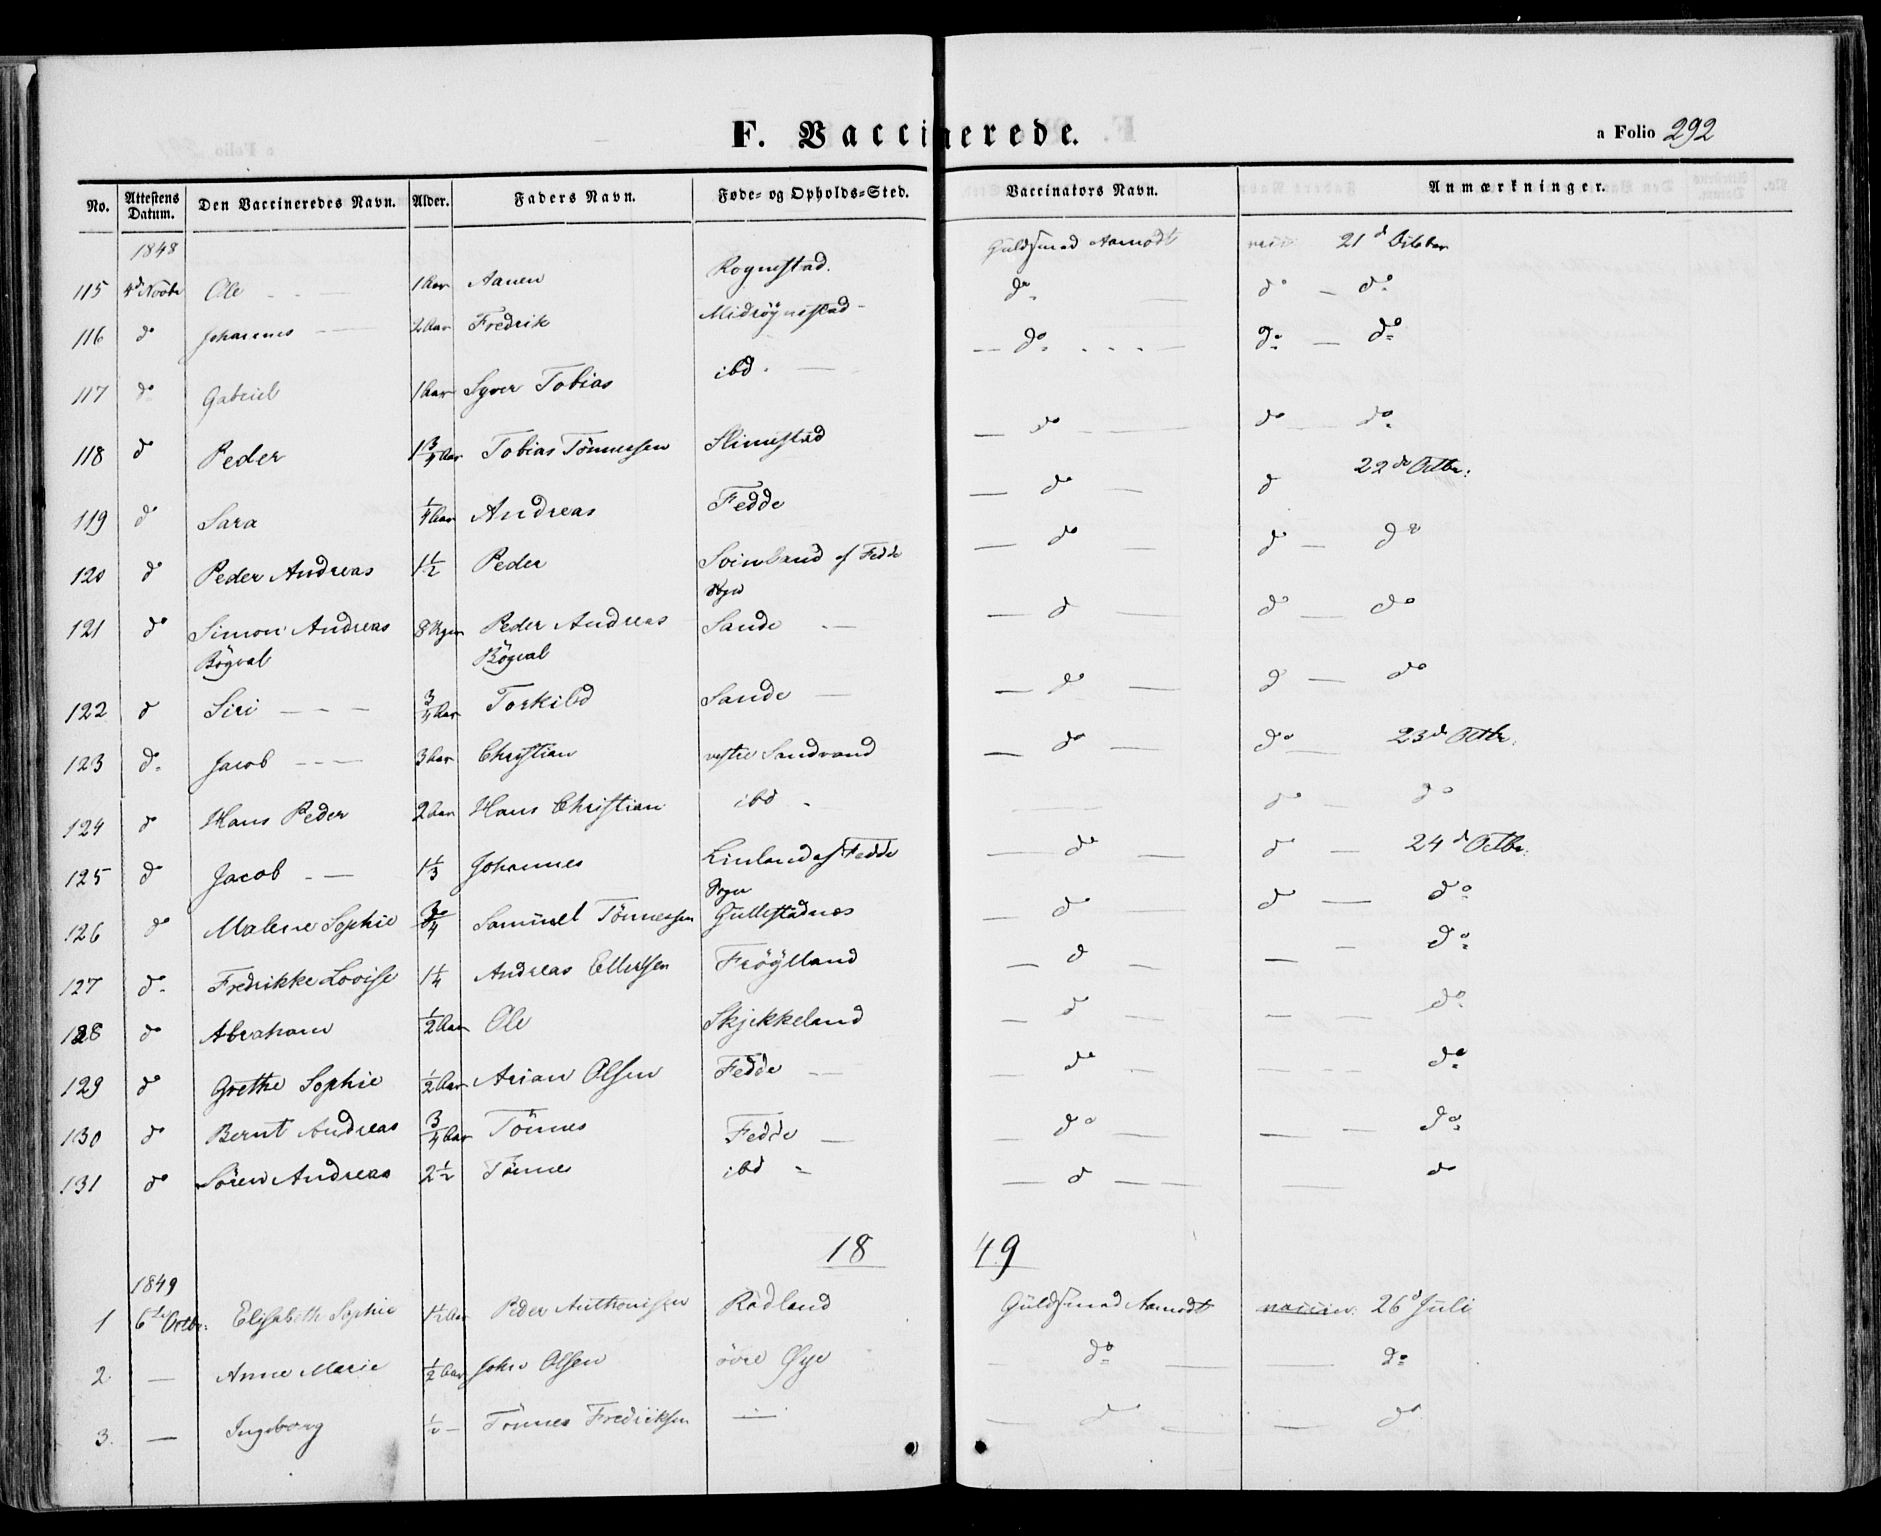 F. Vaccinerede.
a Folio 292
No. Attestens Datum. Den Vaccineredes Navn. Alder. Faders Navn. Føde- og Opholds-Sted. Vaccinators Navn. Anmærkninger.
1848 Guldsmed Aamodt 21d October
115 4d Novbr Ole — 1 Aar Aanen Rognestad. do — do — do
116 do Johannes — 2 Aar Fredrik Midrögnestad — do — do — do
117 do Gabriel 1 Aar Syver Tobias ibd. — do — do do
118 do Peder 1 3/4 Aar Tobias Tönnessen Slimestad — do — d 22de Octbr:
119 do Sara 1/4 Aar Andreas Fedde — do — do — do
120 do Peder Andreas 1 1/2 Peder Svinland af Fedde
Sogn
— d — do — do
121 do Simon Andreas 8 Ugr Peder Andreas Sande —
Bögval Bögval
— do — d — do
122 d Siri — — — 3/4 Aar Torkild Sande — — do — do — 23d Octbr.
123 do Jacob — — — 3 Aar Christian vestre Sandvand
124 do Hans Peder 2 Aar Hans Christian ibd — do do
125 do Jacob — 1 1/3 Johannes Linland af Fedde — do — d — 24d Octbr.
Sogn
126 do Malene Sophie 3/4 Samuel Tönnessen Gullestadnes — do — d — do
127 do Fredrikke Lovise 1 1/4 Andreas Ellefsen Fröylland — d — — — do
128 do Abraham 1/2 Aar Ole Skjekkeland — do — — — do
129 do Grethe Sophie 1/2 Aar Arian Olsen Fedde — — do — — — do
130 do Bernt Andreas 3/4 Aar Tönnes Fedde — — do — — — do
131 do Sören Andreas 2 1/2 Tönnes ibd — — d — — — do
18 49
1849
1 6te Octbr. Elisabeth Sophie 1 1/2 Aar Peder Anthonisen Rødland Guldsmed Aamodt vaccin: 26d Juli
2 — Anne Marie 1/2 Aar John Olsen övre Øye do — do
3. — Ingeborg 1/2 — Tönnes Fredriksen — — do — — do